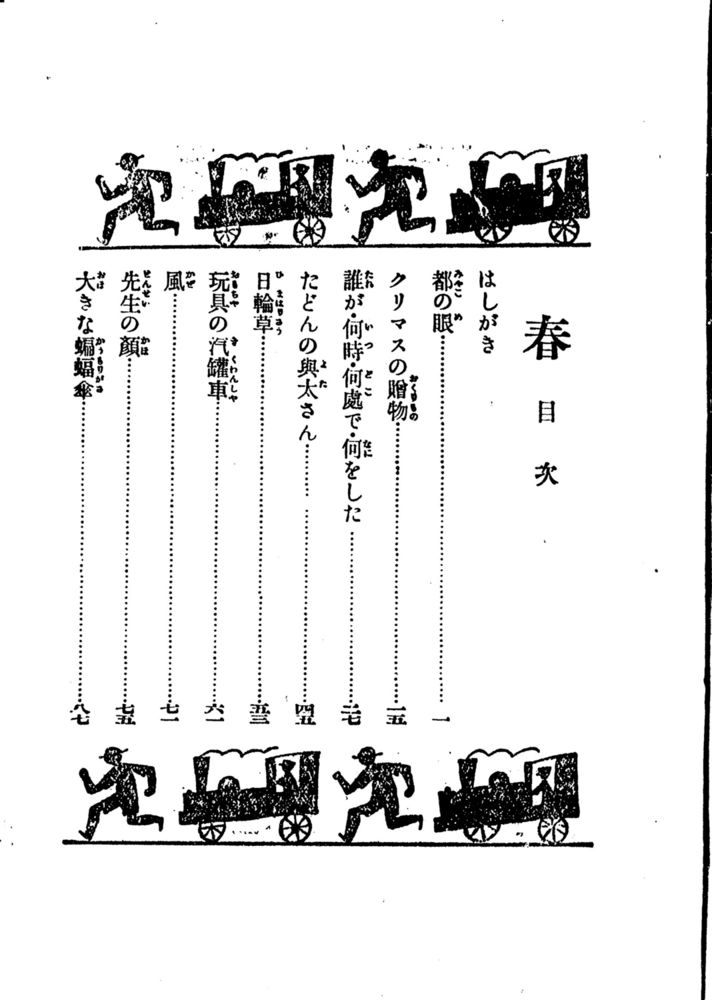 春 目次
はしがき
都の眼 一
クリマスの贈物 一五
誰が・何時・何處で・何をした 二七
たどんの與太さん 四五
日輪草 五三
玩具の汽罐車 六一
風 七一
先生の顔 七五
大きな蝙蝠傘 八七